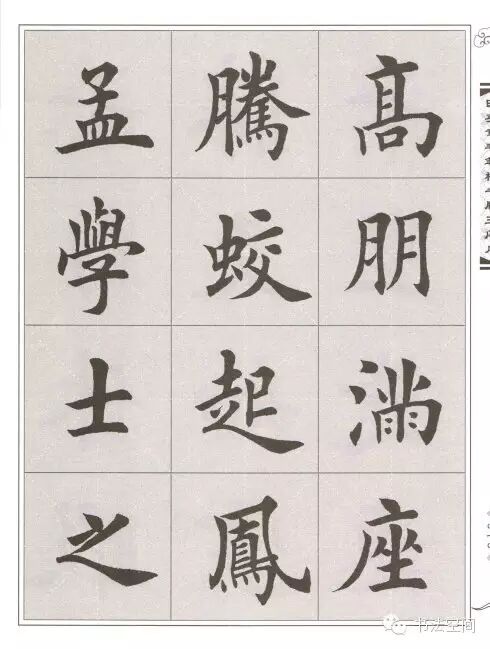 高朋滿座
騰蛟起鳳
孟學士之
书法空间